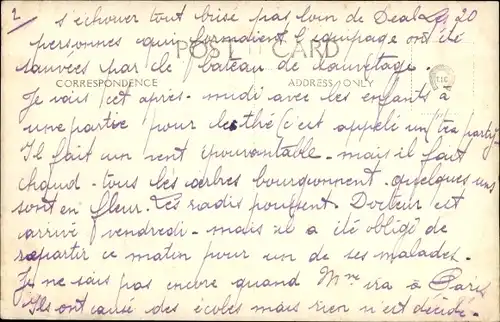 2
s'échouer tout brisé pas loin de Deal. Les 20
personnes qui formaient l'équipage ont été
POST CARD
sauvées par le bateau de sauvetage.
CORRESPONDENCE ADDRESS ONLY
Je vais cet après-midi avec les enfants à
une partie pour le thé (c'est appelé un tea party)
Il fait un vent épouvantable - mais il fait
chaud - tous les arbres bourgeonnent - quelques uns
sont en fleur. Les radis poussent. Docteur est
arrivé vendredi - mais il a été obligé de
repartir ce matin pour un de ses malades.
Je ne sais pas encore quand Mme ira à Paris
Ils ont causé des écoles mais rien n'est décidé.